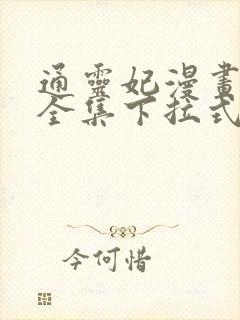 通靈妃漫畫
全集下拉式
今何惜